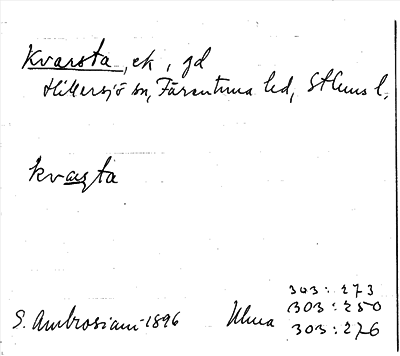 Kvarsta, ek, gd
Hillersjö sn, Färentuna hd, Sthlms l.
kvaṣta
S. Ambrosiani 1896
Ulma 303:273
303:250
303:276